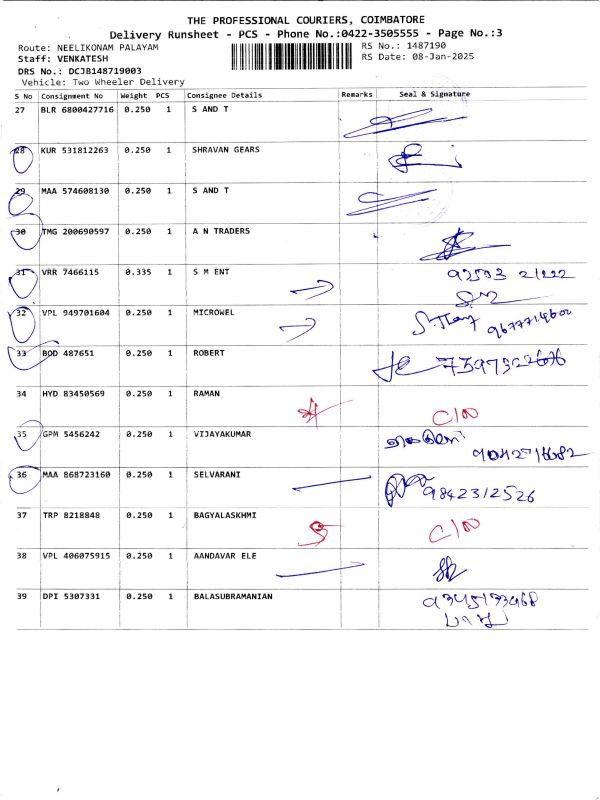 THE PROFESSIONAL COURIERS, COIMBATORE
Delivery Runsheet - PCS - Phone No.:0422-3505555 - Page No.:3
Route: NEELIKONAM PALAYAM RS No.: 1487190
Staff: VENKATESH RS Date: 08-Jan-2025
DRS No.: DCJB148719003
Vehicle: Two Wheeler Delivery
S No Consignment No Weight PCS Consignee Details Remarks Seal & Signature
27 BLR 6800427716 0.250 1 S AND T
28 KUR 531812263 0.250 1 SHRAVAN GEARS
29 MAA 574608130 0.250 1 S AND T
30 TMG 200690597 0.250 1 A N TRADERS
31 VRR 7466115 0.335 1 S M ENT
32 VPL 949701604 0.250 1 MICROWEL
33 BOD 487651 0.250 1 ROBERT
34 HYD 83450569 0.250 1 RAMAN
35 GPM 5456242 0.250 1 VIJAYAKUMAR
36 MAA 868723160 0.250 1 SELVARANI 9842312526
37 TRP 8218848 0.250 1 BAGYALASKHMI
38 VPL 406075915 0.250 1 AANDAVAR ELE
39 DPI 5307331 0.250 1 BALASUBRAMANIAN